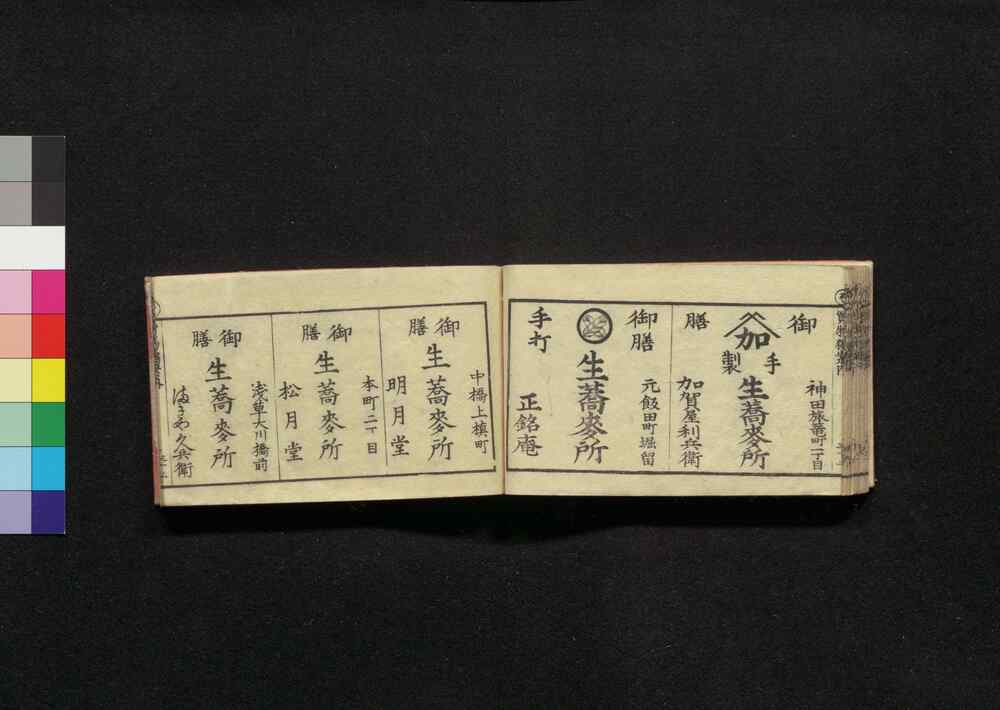 御膳
加
手製
生蕎麥所
神田旅篭町一丁目
加賀屋利兵衛
御膳
手打
生蕎麥所
元飯田町堀留
正銘庵
御膳
生蕎麥所
中橋上槇町
明月堂
御膳
生蕎麥所
本町二丁目
松月堂
御膳
生蕎麥所
浅草大川橋前
久兵衛